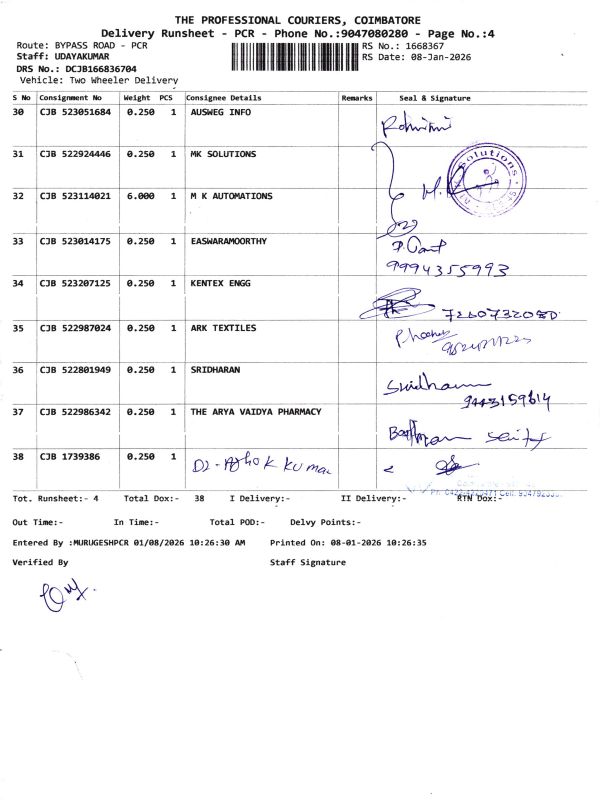 THE PROFESSIONAL COURIERS, COIMBATORE
Delivery Runsheet - PCR - Phone No.:9047080280 - Page No.:4
Route: BYPASS ROAD - PCR RS No.: 1668367
Staff: UDAYAKUMAR RS Date: 08-Jan-2026
DRS No.: DCJB166836704
Vehicle: Two Wheeler Delivery
S No Consignment No Weight PCS Consignee Details Remarks Seal & Signature
30 CJB 523051684 0.250 1 AUSWEG INFO
Rohini
31 CJB 522924446 0.250 1 MK SOLUTIONS
Solutions
32 CJB 523114021 6.000 1 M K AUTOMATIONS
33 CJB 523014175 0.250 1 EASWARAMOORTHY
9994355993
34 CJB 523207125 0.250 1 KENTEX ENGG
7260732080
35 CJB 522987024 0.250 1 ARK TEXTILES
36 CJB 522801949 0.250 1 SRIDHARAN
Sridharan
9443159614
37 CJB 522986342 0.250 1 THE ARYA VAIDYA PHARMACY
38 CJB 1739386 0.250 1 Dr-Ashok Kumar
Tot. Runsheet:- 4 Total Dox:- 38 I Delivery:- II Delivery:- RTN Dox:-
Out Time:- In Time:- Total POD:- Delvy Points:-
Entered By :MURUGESHPCR 01/08/2026 10:26:30 AM Printed On: 08-01-2026 10:26:35
Verified By Staff Signature